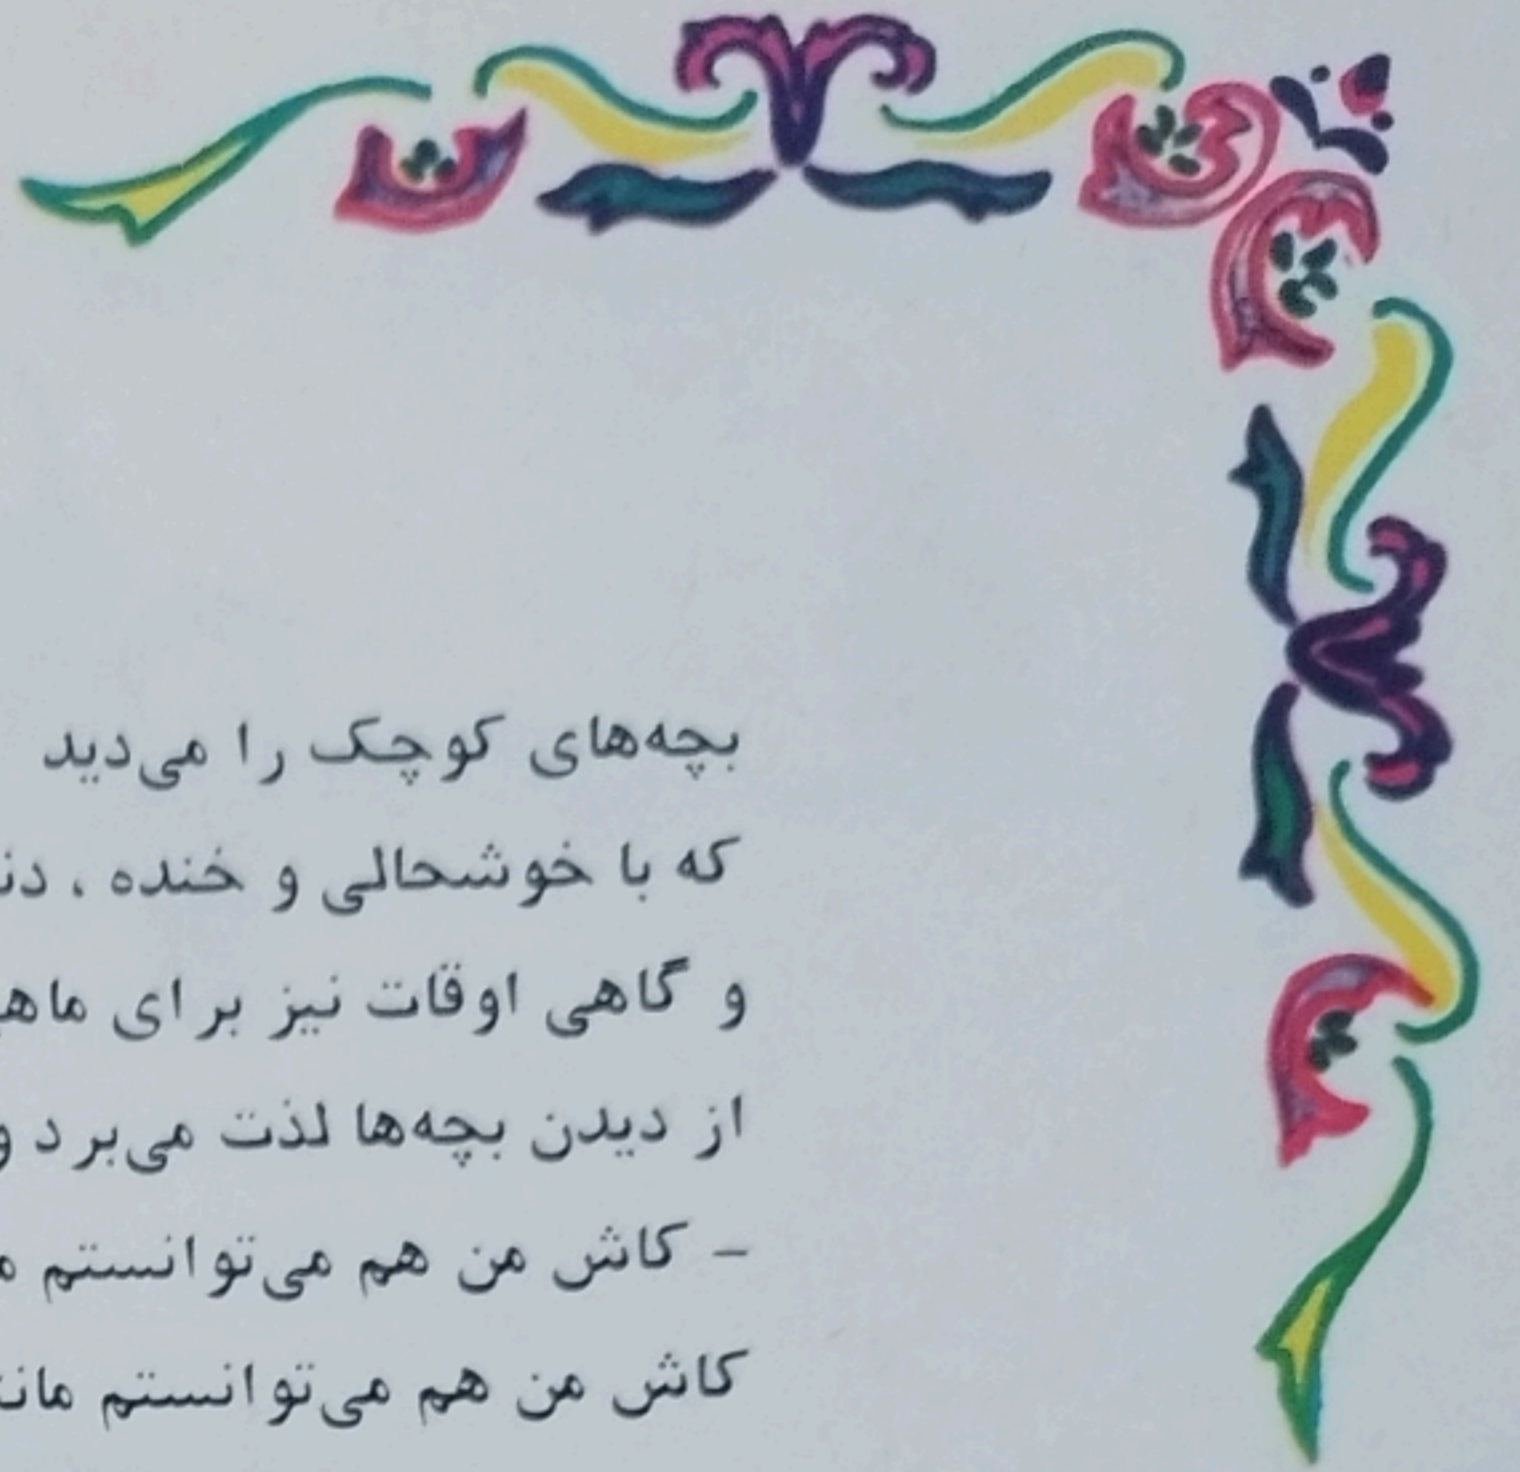 بچه‌های کوچک را می‌دید
که با خوشحالی و خنده ،
و گاهی اوقات نیز برای
از دیدن بچه‌ها لذت می‌برد و
- کاش من هم می‌توانستم
کاش من هم می‌توانستم